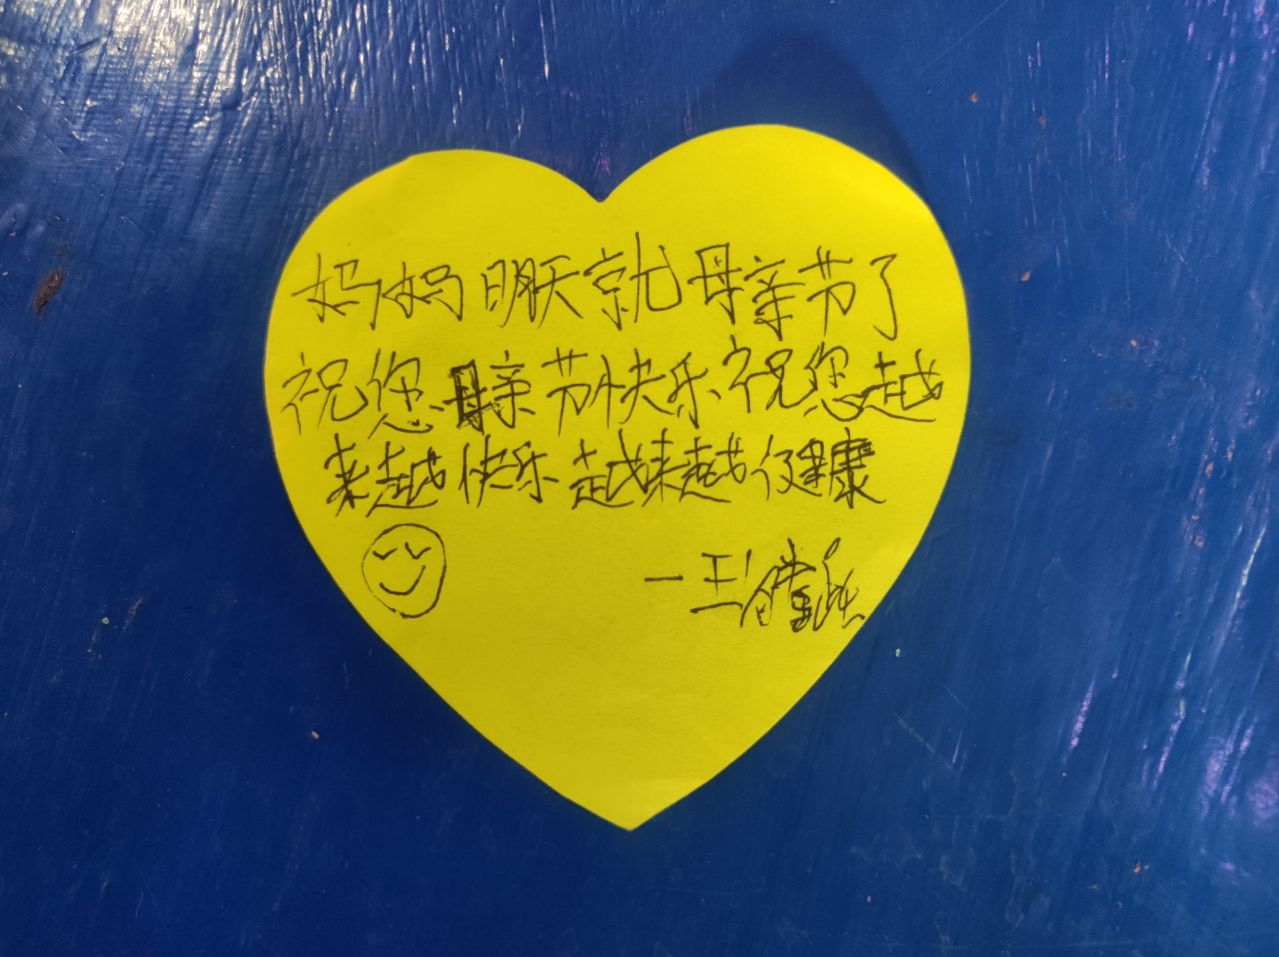 妈妈明天就母亲节了
祝您母亲节快乐祝您越
来越快乐越来越健康
一王